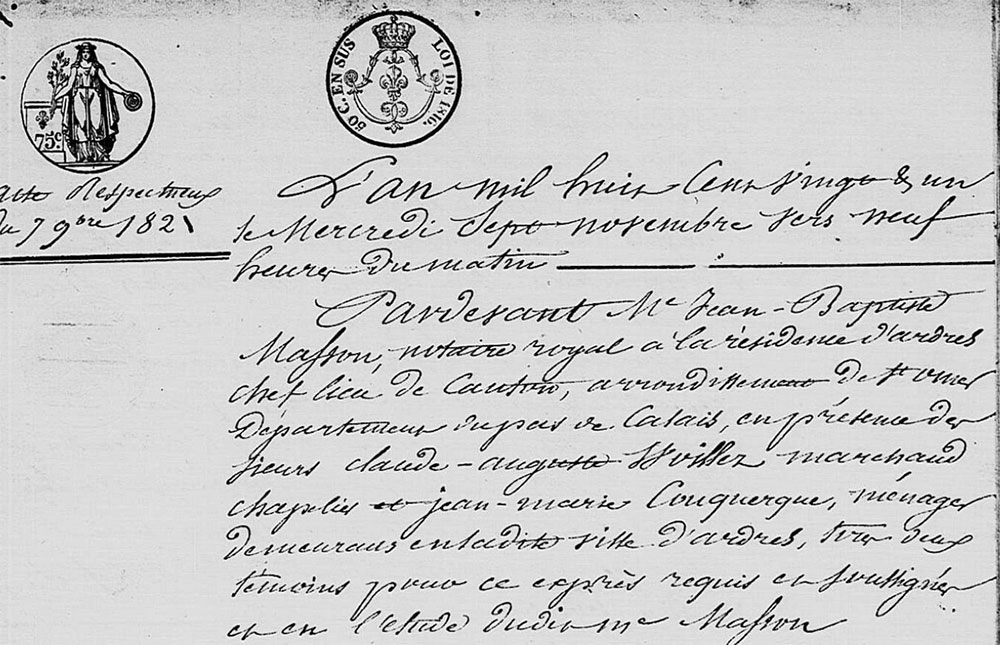 75c.
50 C. EN SUS LOI DE 1816.
acte Respectueux
du 7 9bre 1821
L'an mil huit Cent vingt & un
le Mercredi Sept novembre vers neuf
heures Du matin
Pardevant Me Jean-Baptiste
Masson, notaire royal à la résidence d'ardres
chef lieu de Canton, arrondissement de St omer
Département du pas de Calais, en présence des
sieurs claude-auguste Willez marchand
chapelier et jean-marie Couquerque, ménager
demeurans en ladite ville d'ardres, tous deux
témoins pour ce exprès requis et soussignés
et en l'étude dudit me Masson